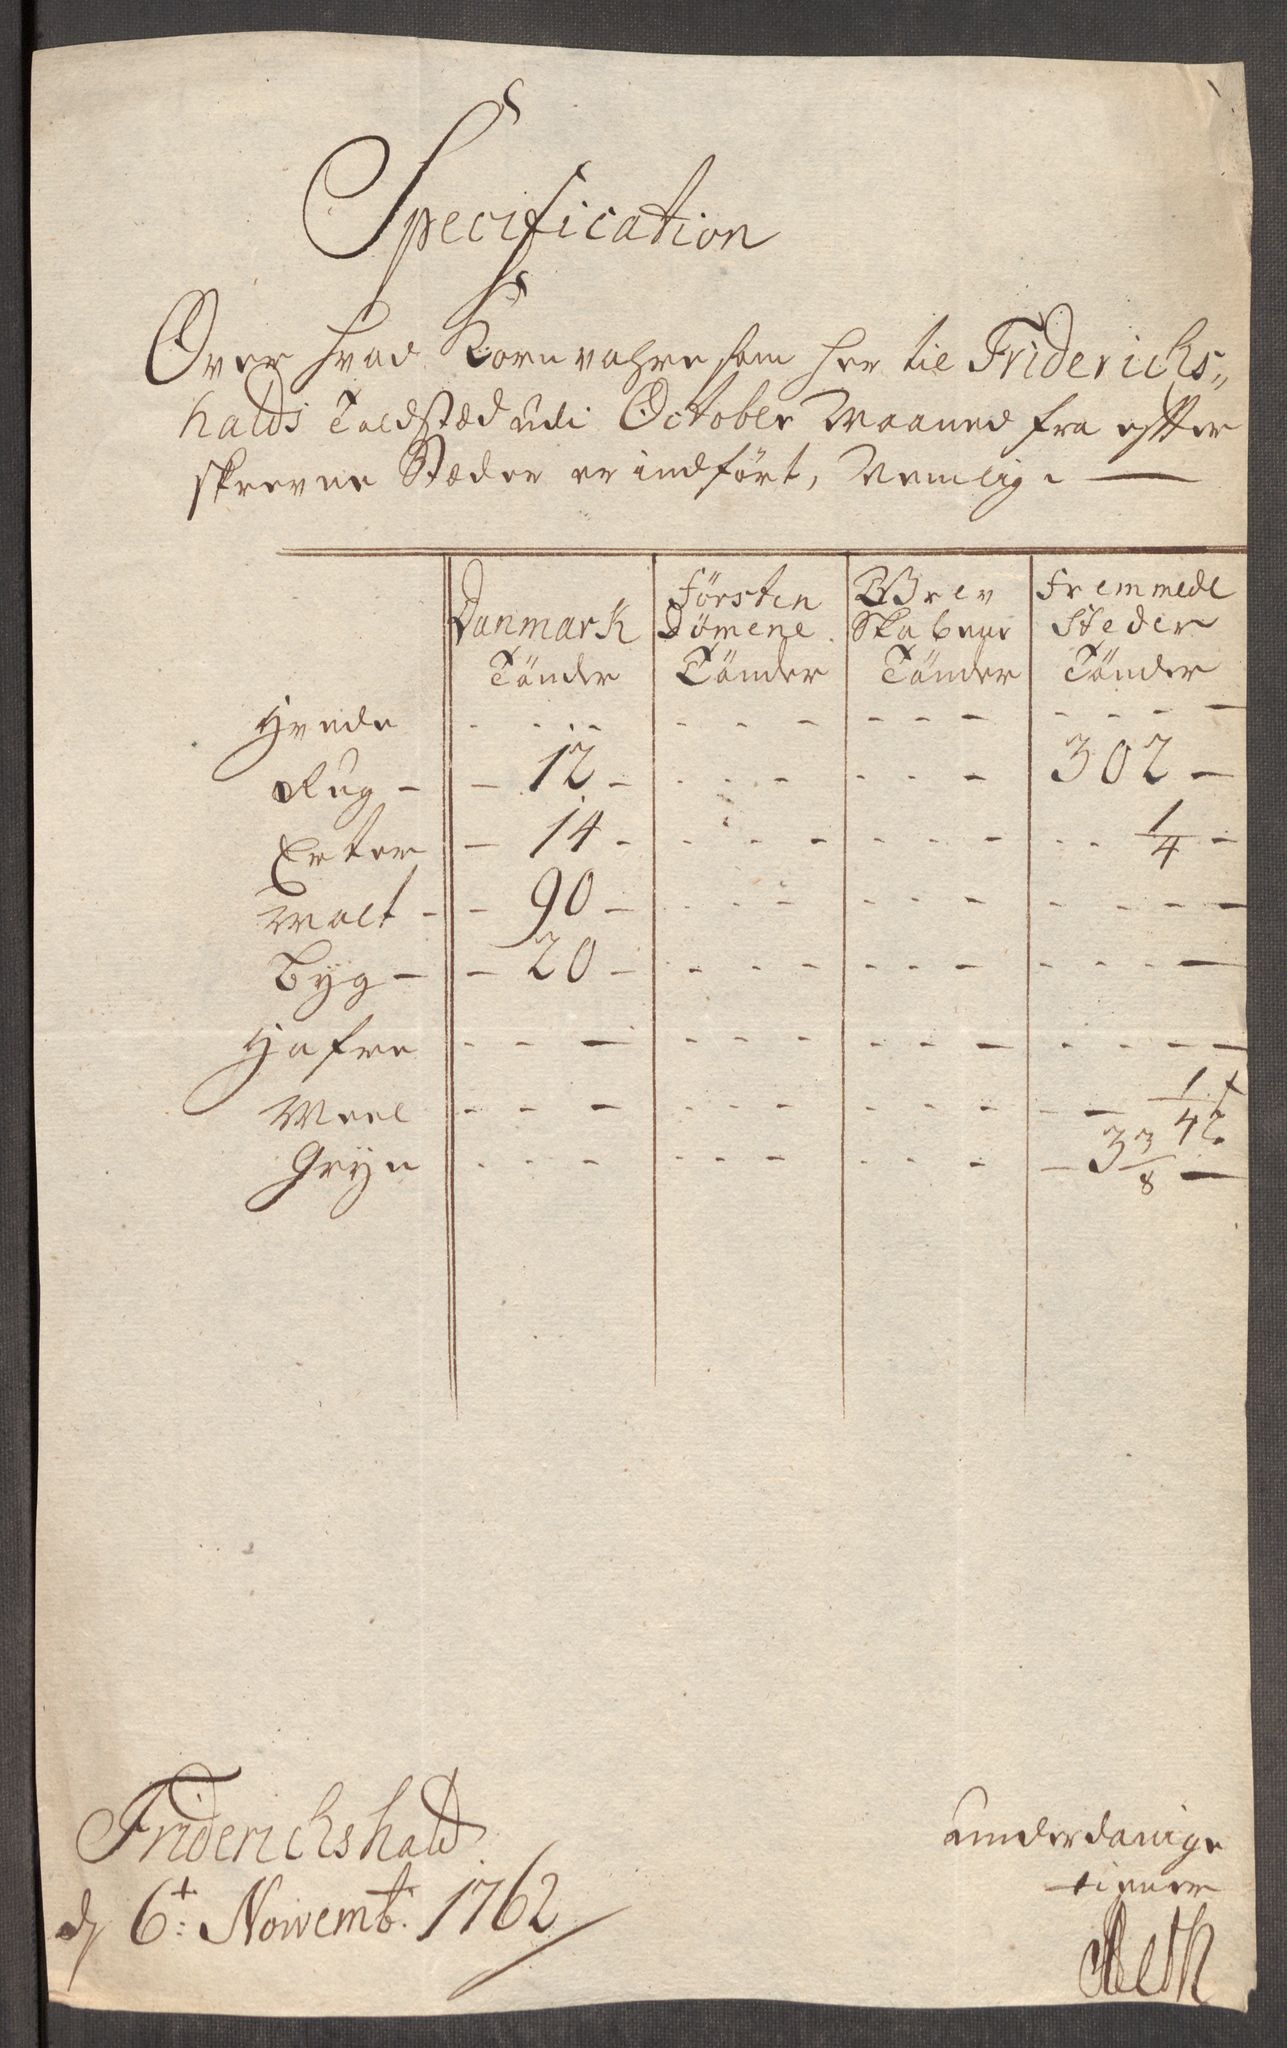 Specification
Over hvad Kornvahre som her til Friderichs„
halds Toldstæd udi October Maaned fra effter
skrevne Stæder er indført, Nemlig. —
Danmark Tønder | Førsten Dømene. Tønder | Grev Skaberne Tønder | Fremmede Steder Tønder
Hvede - - - - | - - - | - - - | - - - -
Rug - | - 12 - | - - - | - - - | 302 -
Erter | - 14 - | - - - | - - - | - - 1/4 -
Malt - | - 90 - | - - - | - - - | - - - -
Byg - | - 20 - | - - - | - - - | - - - -
Hafre | - - - | - - - | - - - | - - - -
Meel | - - - | - - - | - - - | - - 1/4
Gryn | - - - | - - - | - - - | - 3 3/8 -
Friderichshald
d 6t: Novemb. 1762
underdanige
tiener